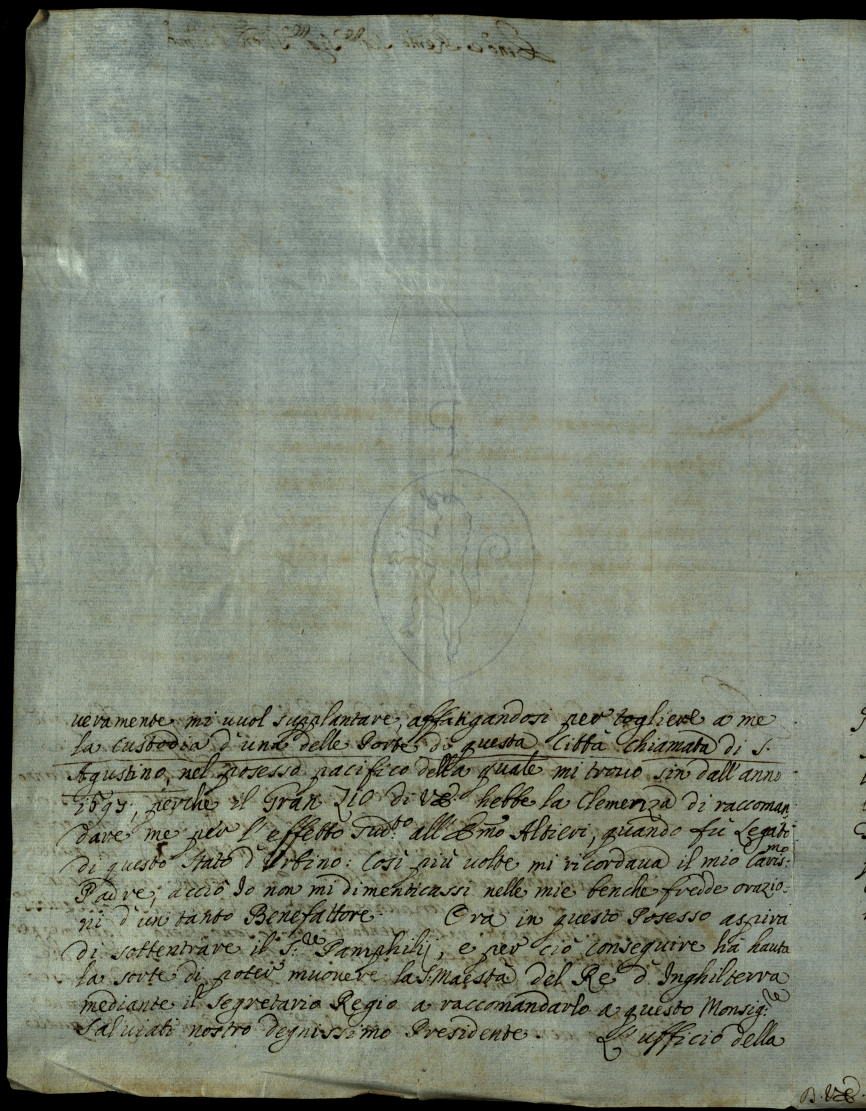 veramente mi vuol supplantare, affatigandosi per togliere a me
la custodia d'una delle Porte di questa Città chiamata di S.
Agustino, nel posesso pacifico della quale mi trovo sin dall'anno
perche il Gran Zio di V.E. hebbe la Clemenza di raccoman
dare me per l'effetto sud.to all'Emo Altieri, quando fù Legato
di questo Stato d'Urbino: Così più volte mi ricordava il mio Cariss.mo
Padre, acciò Io non mi dimenticassi nelle mie benche fredde orazio-
ni d'un tanto Benefattore. Ora in questo Posesso aspira
di sottentrare il S.r Pamphilij, e per ciò conseguire hà hauta
la sorte di poter muovere la S. Maestà del Re d'Inghilterra
mediante il Segretario Regio a raccomandarlo a questo Monsig.re
Salviati nostro degnissimo Presidente. L'ufficio della